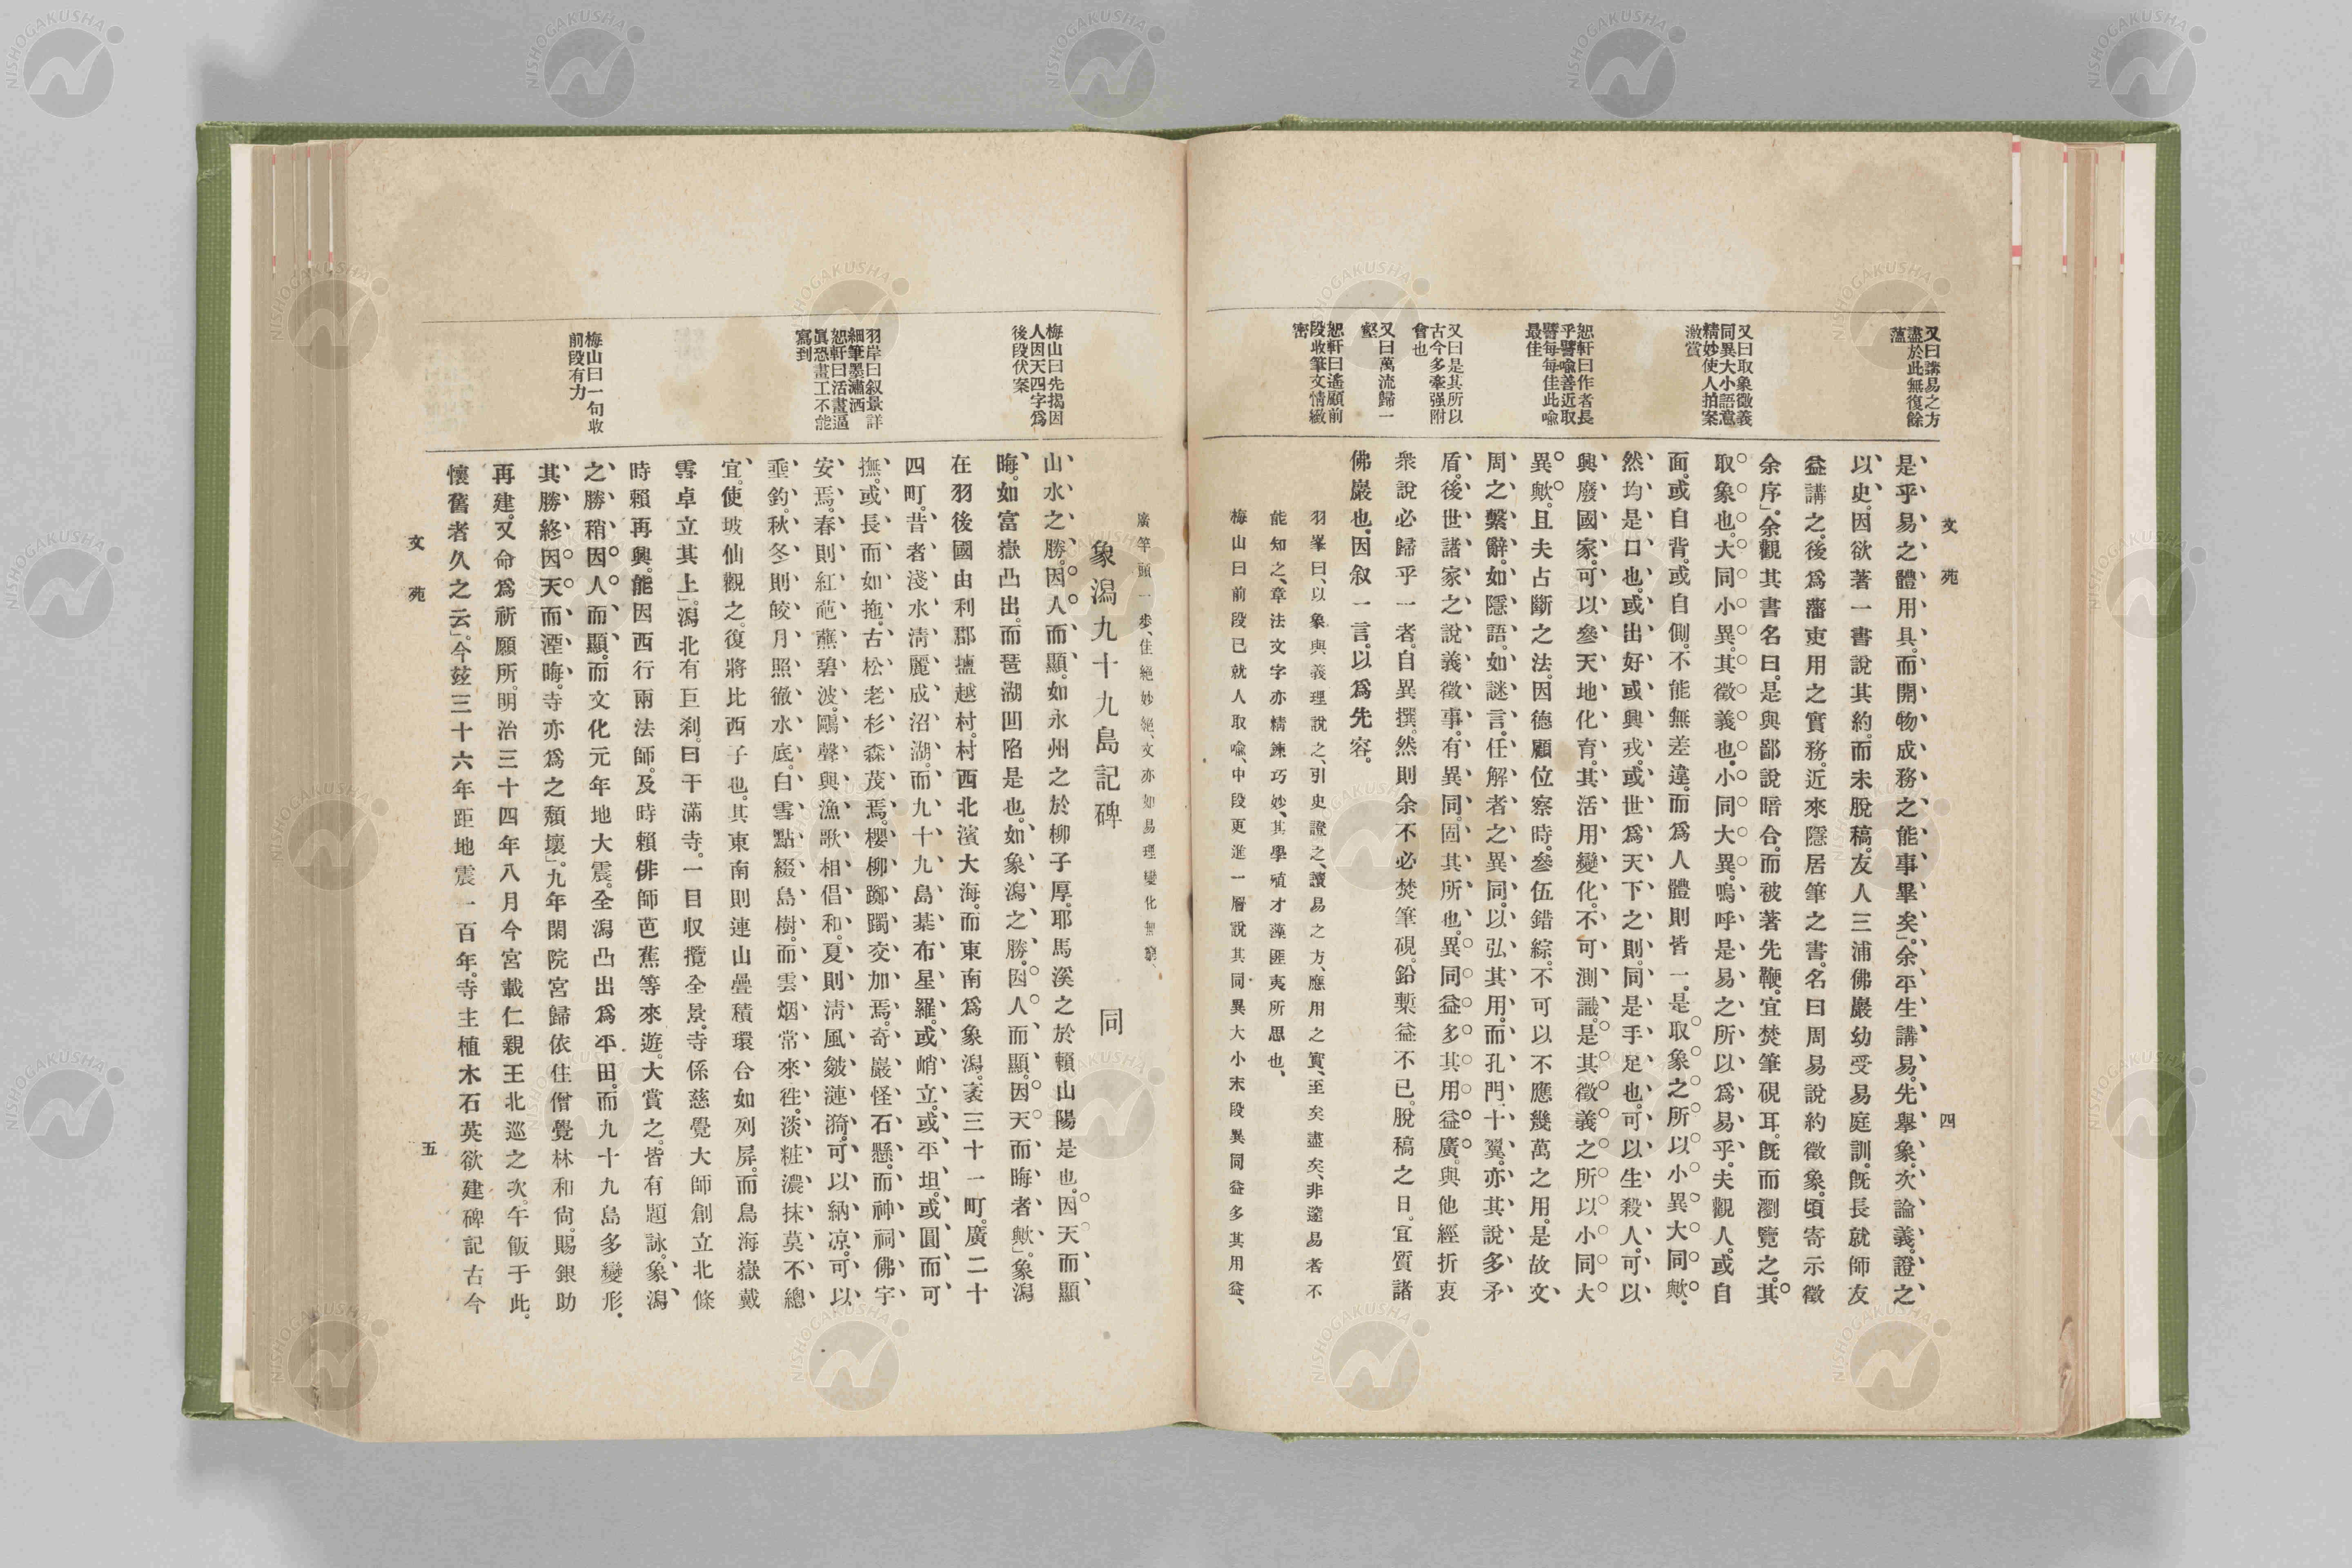 文苑
四
又曰講易之方
盡於此無復餘
薀
又曰取象徵義
同異大小語意
精妙使人拍案
激賞
恕軒曰作者長
乎譬喩善近取
譬每每佳此喩
最佳
又曰是其所以
古今多牽强附
會也
又曰萬流歸一
壑
恕軒曰遙顧前
段收筆文情緻
密
是乎、易之體用具。而開物成務之能事畢矣」。余平生講易。先擧象。次論義。證之
以史。因欲著一書說其約。而未脫稿。友人三浦佛巖幼受易庭訓。旣長就師友
益講之。後爲藩吏用之實務。近來隱居筆之書。名曰周易說約徵象。頃寄示徵
余序」。余觀其書名曰。是與鄙說暗合。而被著先鞭。宜焚筆硯耳。旣而瀏覽之。其
取象也。大同小異。其徵義也。小同大異。嗚呼是易之所以爲易乎。夫觀人。或自
面。或自背。或自側。不能無差違。而爲人體則皆一。是取象之所以小異大同歟。
然均是口也。或出好或興戎。或世爲天下之則。同是手足也。可以生殺人。可以
興廢國家。可以參天地化育。其活用變化。不可測識。是其徵義之所以小同大
異歟。且夫占斷之法。因德顧位察時。參伍錯綜。不可以不應幾萬之用。是故文
周之繫辭。如隱語。如謎言。任解者之異同。以弘其用。而孔門十翼。亦其說多矛
盾。後世諸家之說義徵事。有異同。固其所也。異同益多其用益廣。與他經折衷
衆說必歸乎一者。自異撰。然則余不必焚筆硯。鉛槧益不已。脫稿之日。宜質諸
佛巖也。因叙一言。以爲先容。
羽峯曰、以象與義理說之、引史證之、讀易之方、應用之實、至矣盡矣、非邃易者不
能知之、章法文字亦精鍊巧妙、其學殖才藻匪夷所思也、
梅山曰前段已就人取喩、中段更進一層說其同異大小末段異同益多其用益、
廣竿頭一步、佳絕妙絕、文亦如易理變化無窮、
象潟九十九島記碑　同
梅山曰先揭因
人因天四字爲
後段伏案
羽岸曰叙景詳
細筆墨瀟洒
恕軒曰活畫逼
眞恐畫工不能
寫到
梅山曰一句收
前段有力
山水之勝。因人而顯。如永州之於柳子厚。耶馬溪之於賴山陽是也。因天而顯
晦。如富嶽凸出。而琶湖凹陷是也。如象潟之勝。因人而顯。因天而晦者歟」。象潟
在羽後國由利郡鹽越村。村西北濱大海。而東南爲象潟。袤三十一町。廣二十
四町。昔者淺水淸麗成沼湖。而九十九島棊布星羅。或峭立。或平坦。或圓而可
撫。或長而如拖。古松老杉森茂焉。櫻柳躑躅交加焉。奇巖怪石懸。而神祠佛宇
安焉。春則紅葩蘸碧波。鷗聲與漁歌相倡和。夏則淸風皺漣漪。可以納凉。可以
垂釣。秋冬則皎月照徹水底。白雪點綴島樹。而雲烟常來徃。淡粧濃抹莫不總
宜。使坡仙觀之。復將比西子也。其東南則連山疊積環合如列屏。而鳥海嶽戴
雪卓立其上」。潟北有巨刹。曰干滿寺。一目収攬全景。寺係慈覺大師創立北條
時賴再興。能因西行兩法師。及時賴俳師芭蕉等來遊。大賞之。皆有題詠。象潟
之勝稍因人而顯。而文化元年地大震。全潟凸出爲平田。而九十九島多變形。
其勝終因天而湮晦。寺亦爲之頽壞」。九年閑院宮歸依住僧覺林和尙。賜銀助
再建。又命爲祈願所。明治三十四年八月今宮載仁親王北巡之次。午飯于此。
懷舊者久之云」。今玆三十六年距地震一百年。寺主植木石英欲建碑記古今
文苑
五